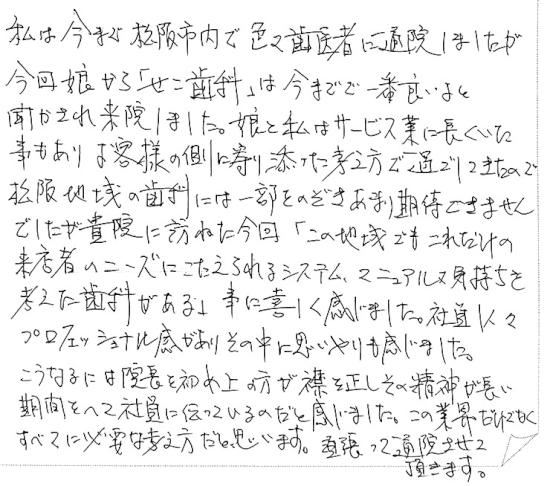 私は今まで松阪市内で色々歯医者に通院しましたが
今回娘から「せこ歯科」は今までで一番良いよと
聞かされ来院しました。娘と私はサービス業に長くいた
事もありお客様の側に寄り添った考え方で通してきたので
松阪地域の歯科には一部をのぞきあまり期待できません
でしたが貴院に訪ねた今回「この地域でもこれだけの
来店者のニーズにこたえられるシステム、マニュアル又気持ちを
考えた歯科がある」事に喜しく感じました。社員1人々
プロフェッショナル感がありその中に思いやりも感じました。
こうなるには院長を初め上の方が襟を正しその精神が長い
期間をへて社員に伝っているのだと感じました。この業界だけでなく
すべてに必要な考え方だと思います。頑張って通院させて
頂きます。